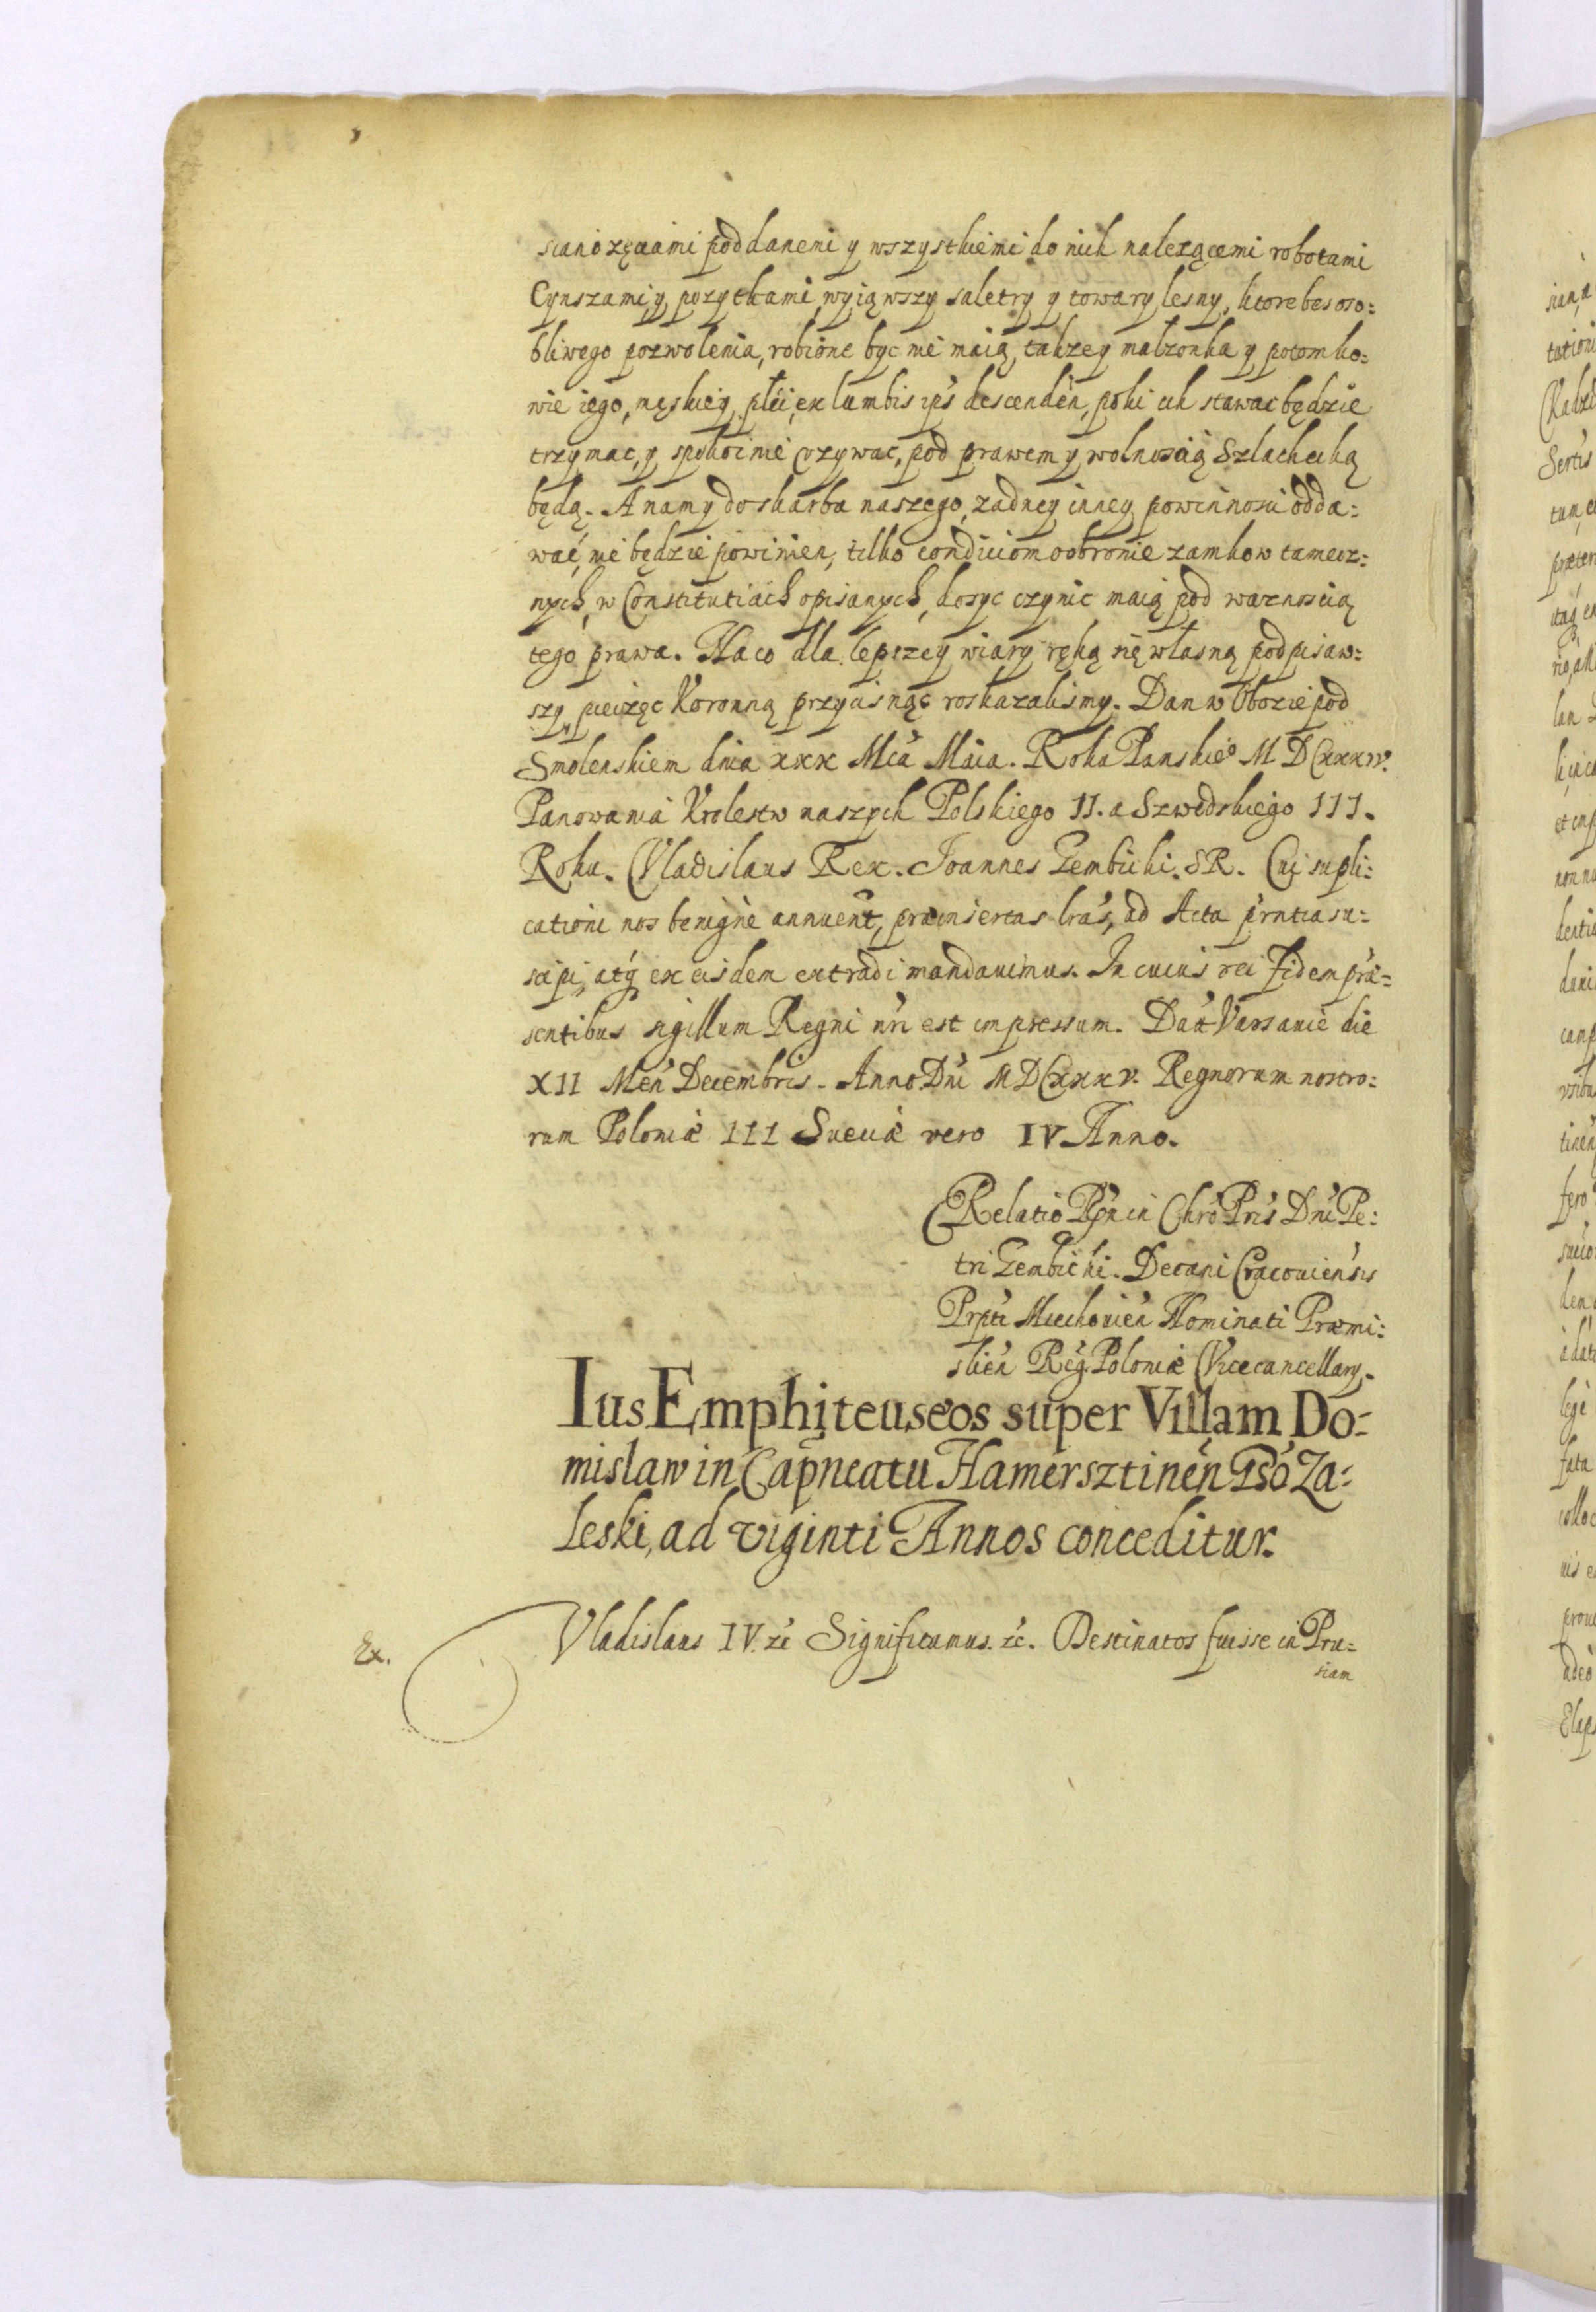 sianożęciami poddanemi y wszystkiemi do nich nalezącemi robotami
Cynszami y pozytkami wyiąwszy saletry y towary lesny, ktore bes oso:
bliwego pozwolenia, robione byc nie maią, takze y malzonka y potomko:
wie iego, męskiey plci, ex lumbis ip's descenden̉, poki ich stawac będzie
trzymac, y spokoinie vzywac, pod prawem y wolnoscią Szlachecką
będą. A nam y do skarbu naszego, zadney inney powinnosci odda:
wać, nie będzie powinien, tilko condiciom o obronie zamkow tamecz:
nych, w Constitutiach opisanych, dosyc czynic maią pod waznoscią
tego prawa. Na co dla lepszey wiary ręką się własną podpisaw:
szy pieczęc Koronną przycisnąc roskazalismy. Dan w Obozie pod
Smolenskiem dnia xxx Mcà Maia. Roku Panskieo MDCxxxiv.
Panowania Krolestw naszych Polskiego II. a Szwedskiego III.
Roku. Vladislaus Rex. Joannes Gembicki. SR. Cui supli:
cationi nos benigne annuen̉t, præinsertas lrás, ad Acta p̉rntia su:
scipi, atq́ ex eisdem extradi mandauimus. In cuius rei fidem præ:
sentibus sigillum Regni nr̉i est impressum. Dat̉ Varsauiæ die
XII Men̉ Decembris. Anno Dn̉i MDCxxxv. Regnorum nostro:
rum Poloniæ III Sueciæ vero IV Anno.
Relatio Rṇ in Chrỏ Pris̉ Dn̉i Pe:
tri Gembicki. Decani Cracouiensis
Prpti Miechouien̉ Nominati Præmi:
slien̉ Reg̉. Poloniæ Vicecancellary.
Ius Emphiteuseos super Villam Do:
mislaw in Cap̃neatu Hamersztinen̉ Gso Za:
leski, ad viginti Annos conceditur.
Ex.
Vladislaus IV. &c̉ Significamus. &c̉. Destinatos fuisse in Pru:
siam